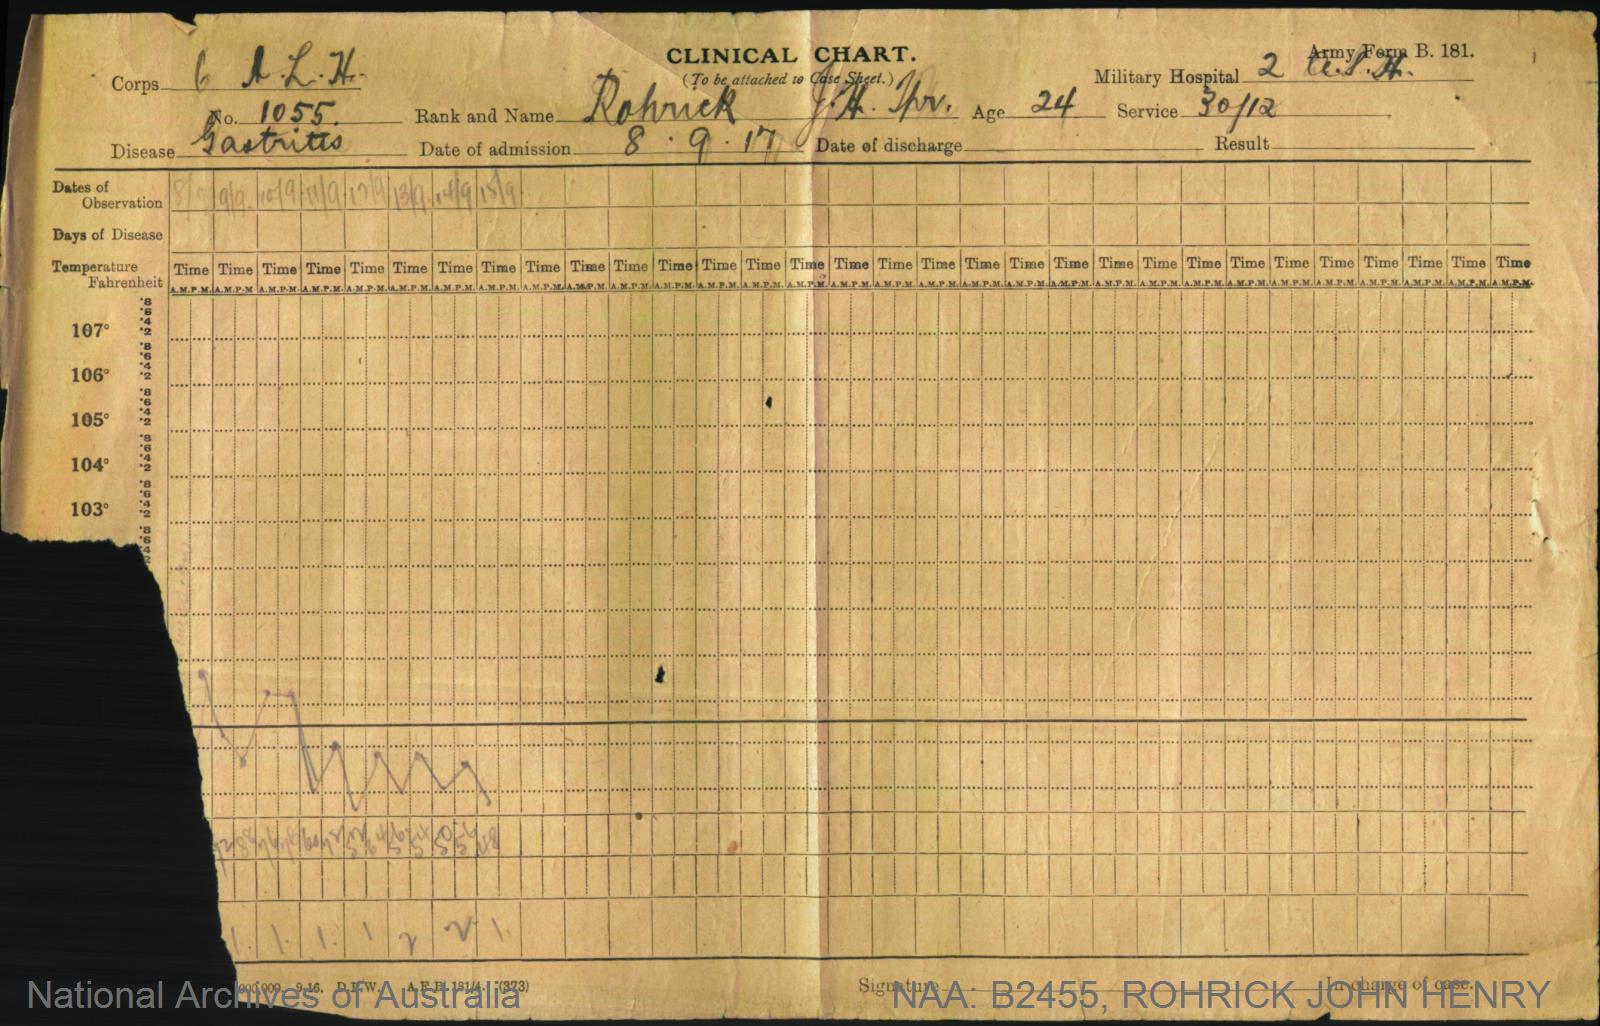 CLINICAL CHART.
Army Form B. 181.
(To be attached to Case Sheet.)
Corps 6 A. L. H. Military Hospital 2 A.S.H.
No. 1055. Rank and Name Rohrick J. H. Tpr. Age 24 Service 30/12
Disease Gastritis Date of admission 8 . 9 . 17 Date of discharge Result
Dates of Observation 8/9 9/9 10/9 11/9 12/9 13/9 14/9 15/9
Days of Disease
Temperature Fahrenheit
Time Time Time Time Time Time Time Time Time Time Time Time Time Time Time Time Time Time Time Time Time Time Time Time Time Time Time Time Time Time Time
A.M. P.M. A.M. P.M. A.M. P.M. A.M. P.M. A.M. P.M. A.M. P.M. A.M. P.M. A.M. P.M. A.M. P.M. A.M. P.M. A.M. P.M. A.M. P.M. A.M. P.M. A.M. P.M. A.M. P.M. A.M. P.M. A.M. P.M. A.M. P.M. A.M. P.M. A.M. P.M. A.M. P.M. A.M. P.M. A.M. P.M. A.M. P.M. A.M. P.M. A.M. P.M. A.M. P.M. A.M. P.M. A.M. P.M. A.M. P.M. A.M. P.M.
107°
106°
105°
104°
103°
1. 1. 1. 1 2 2 1.
000,000. 9-16. D.I.W. A.F.B. 181/4. (373)
Signature In charge of case.
National Archives of Australia
NAA: B2455, ROHRICK JOHN HENRY